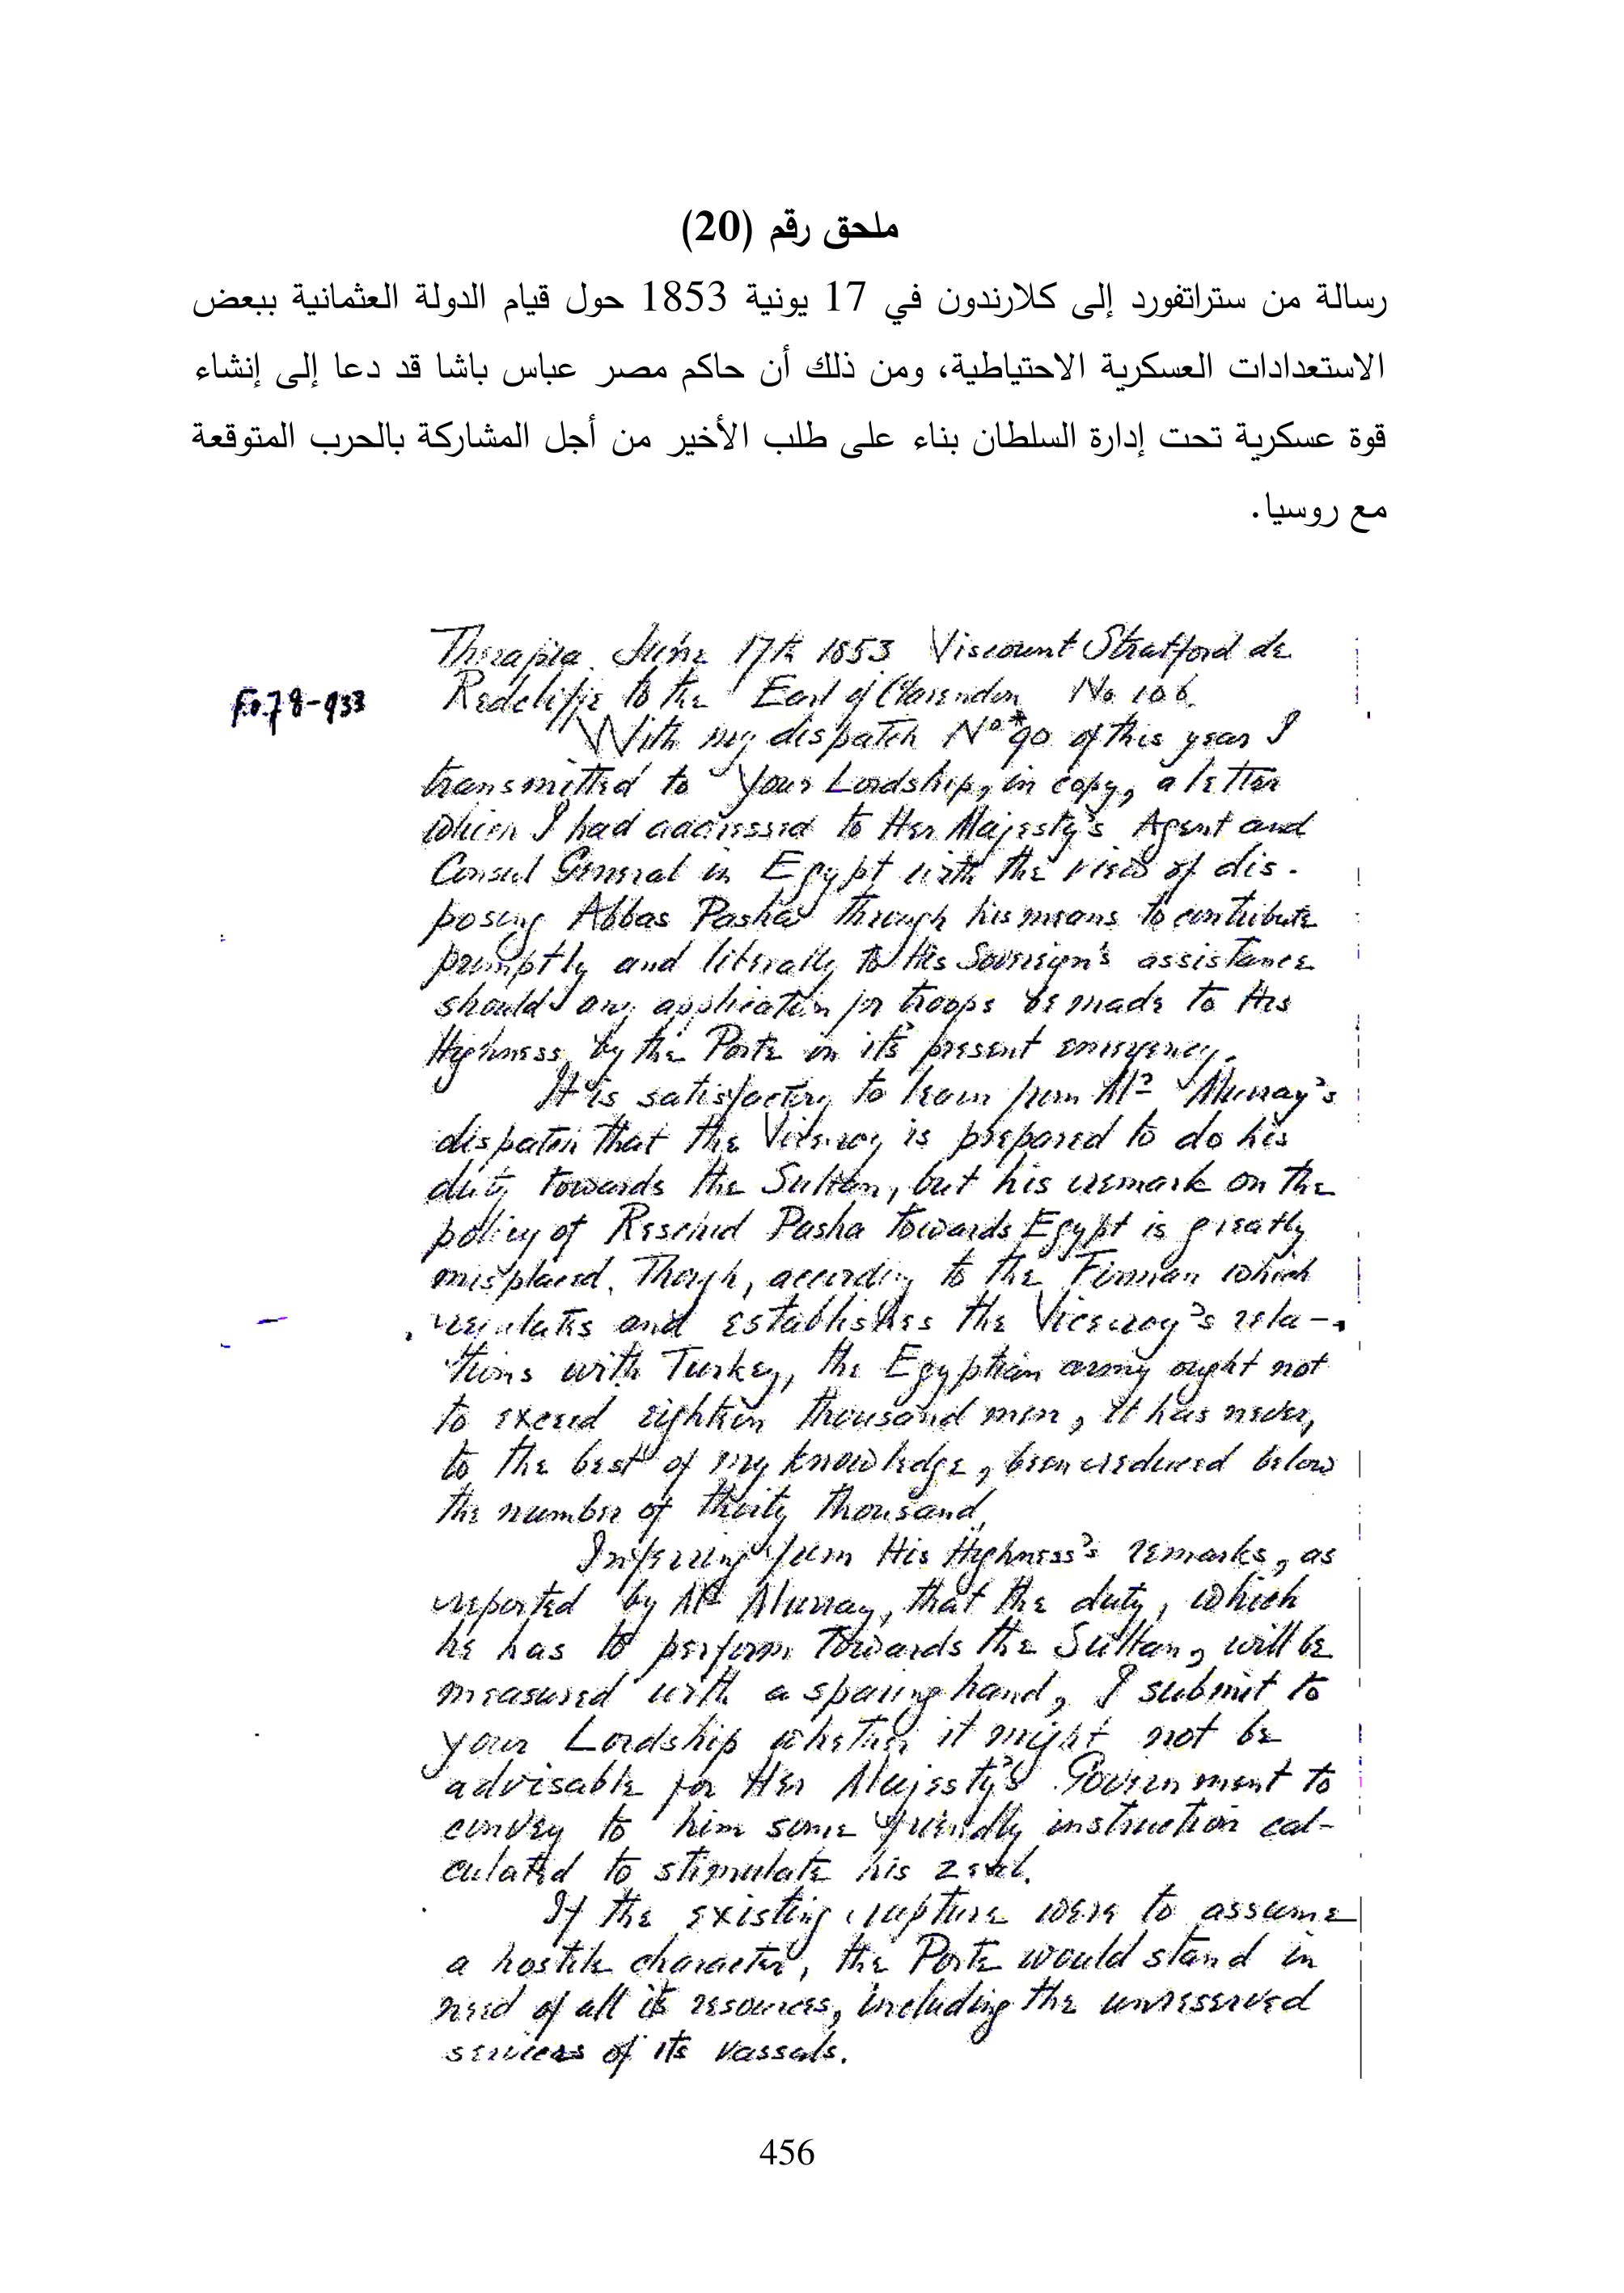 ملحق رقم (20)
رسالة من ستراتفورد إلى كلارندون في 17 يونية 1853 حول قيام الدولة العثمانية ببعض
الاستعدادات العسكرية الاحتياطية، ومن ذلك أن حاكم مصر عباس باشا قد دعا إلى إنشاء
قوة عسكرية تحت إدارة السلطان بناء على طلب الأخير من أجل المشاركة بالحرب المتوقعة
مع روسيا.
Therapia June 17th 1853 Viscount Stratford de
F.O.78-933 Redcliffe to the Earl of Clarendon No. 106.
With my dispatch No 90 of this year I
transmitted to Your Lordship, in copy, a letter
which I had addressed to Her Majesty's Agent and
Consul General in Egypt with the view of dis-
posing Abbas Pasha through his means to contribute
promptly and liberally to His Sovereign's assistance
should any application for troops be made to His
Highness by the Porte in its present emergency.
It is satisfactory to learn from Mr Murray's
dispatch that the Viceroy is prepared to do his
duty towards the Sultan, but his remark on the
policy of Reschid Pasha towards Egypt is greatly
misplaced. Though, according to the Firman which
regulates and establishes the Viceroy's rela-
tions with Turkey, the Egyptian army ought not
to exceed eighteen thousand men, it has never,
to the best of my knowledge, been reduced below
the number of thirty thousand.
Inferring from His Highness's remarks, as
reported by Mr Murray, that the duty, which
he has to perform towards the Sultan, will be
measured with a sparing hand, I submit to
your Lordship whether it might not be
advisable for Her Majesty's Government to
convey to him some friendly instruction cal-
culated to stimulate his zeal.
If the existing rupture were to assume
a hostile character, the Porte would stand in
need of all its resources, including the unreserved
services of its vassals.
456